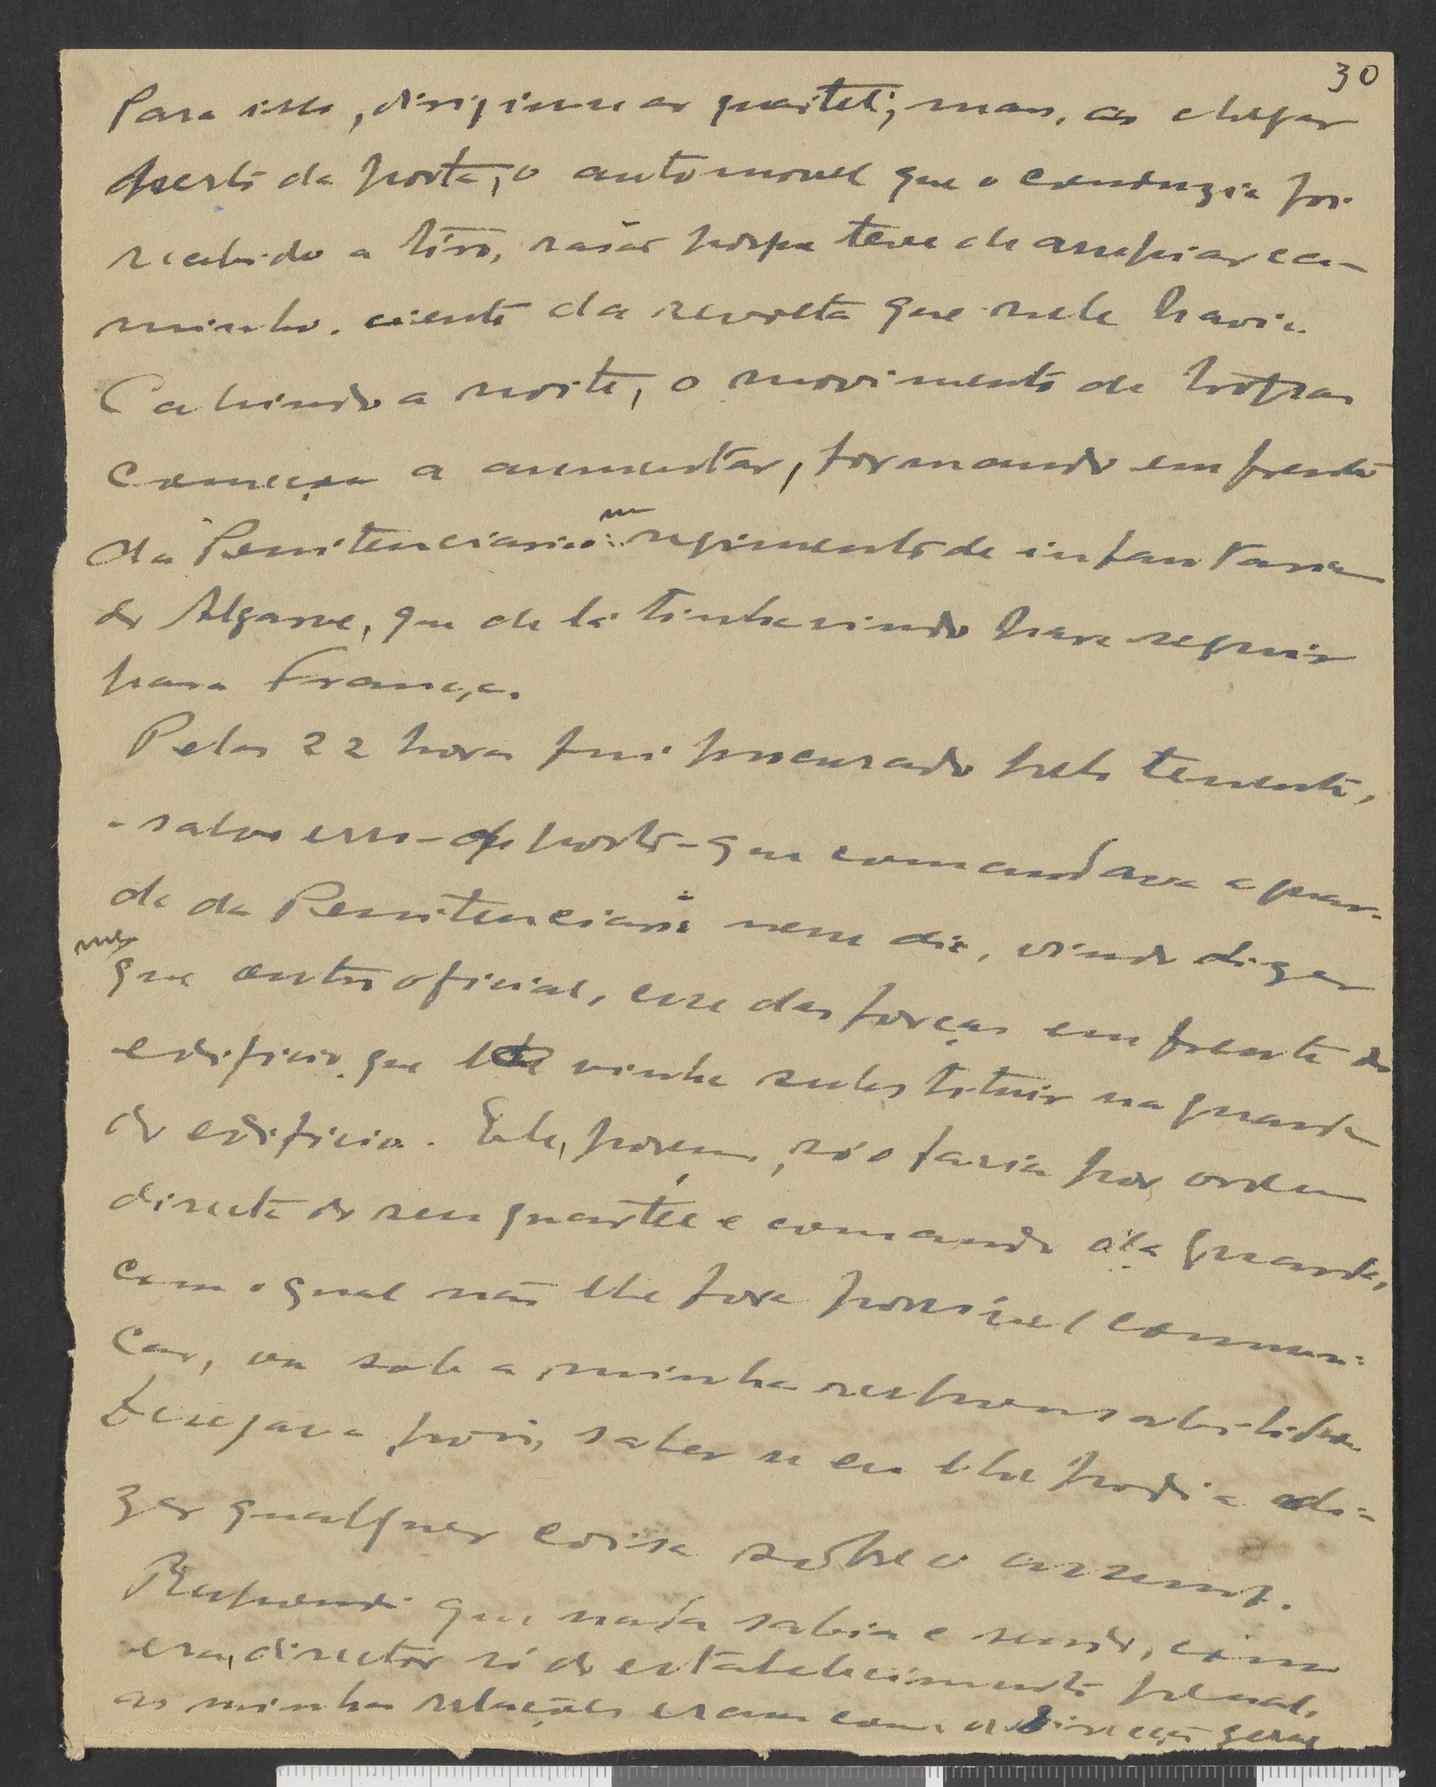 30
Para isso, dirigiu-se ao quartel; mas, ao chegar
perto da porta, o automovel que o conduzia foi
recebido a tiro, razão porque teve de arrepiar ca-
minho, ciente da revolta que nele havia.
Cahindo a noite, o movimento de tropas
começou a aumentar, formando em frente
da Penitenciaria um regimento de infantaria
do Algarve, que de lá tinha vindo para seguir
para França.
Pelas 22 horas fui procurado pelo tenente,
- salvo erro de posto - que comandava a guar-
da da Penitenciaria nesse dia, vindo dizer
me que outro oficial, esse das forças em frente do
edificio, que lhe vinha substituir na guarda
do edificio. Ele, porém, só o faria por ordem
directa do seu quartel e comando da guarda,
com o qual não lhe fora possivel communi-
car, ou sob a minha responsabilidade.
Desejava, pois, saber se eu lhe podia di-
zer qualquer coisa sôbre o assunto.
Respondi que nada sabia e sendo, como
era, director só do estabelecimento penal,
as minhas relações eram com a Direcção geral